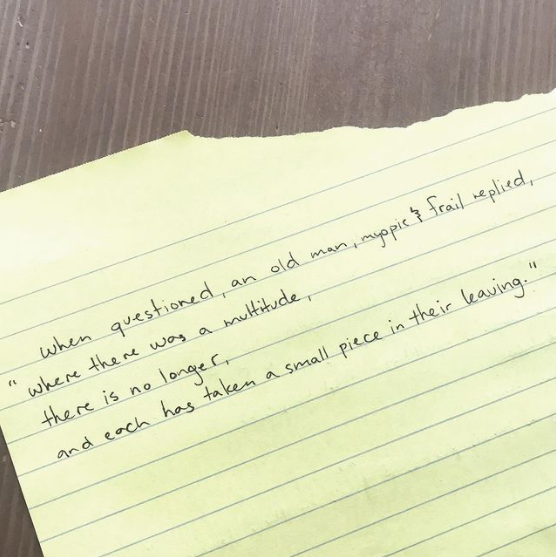 when questioned, an old man, myopic & frail replied,
"where there was a multitude,
there is no longer,
and each has taken a small piece in their leaving."